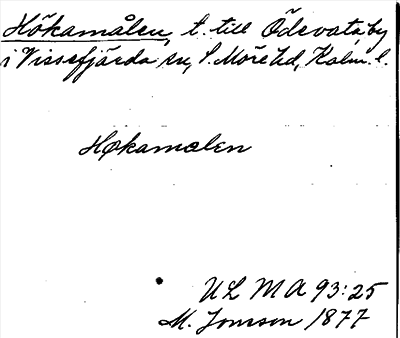 Hökamålen, t. till Ödevata, by
i Vissefjärda sn, S. Möre hd, Kalm. l.
Høkamalen
UL MA 93:25
M. Jonsson 1877